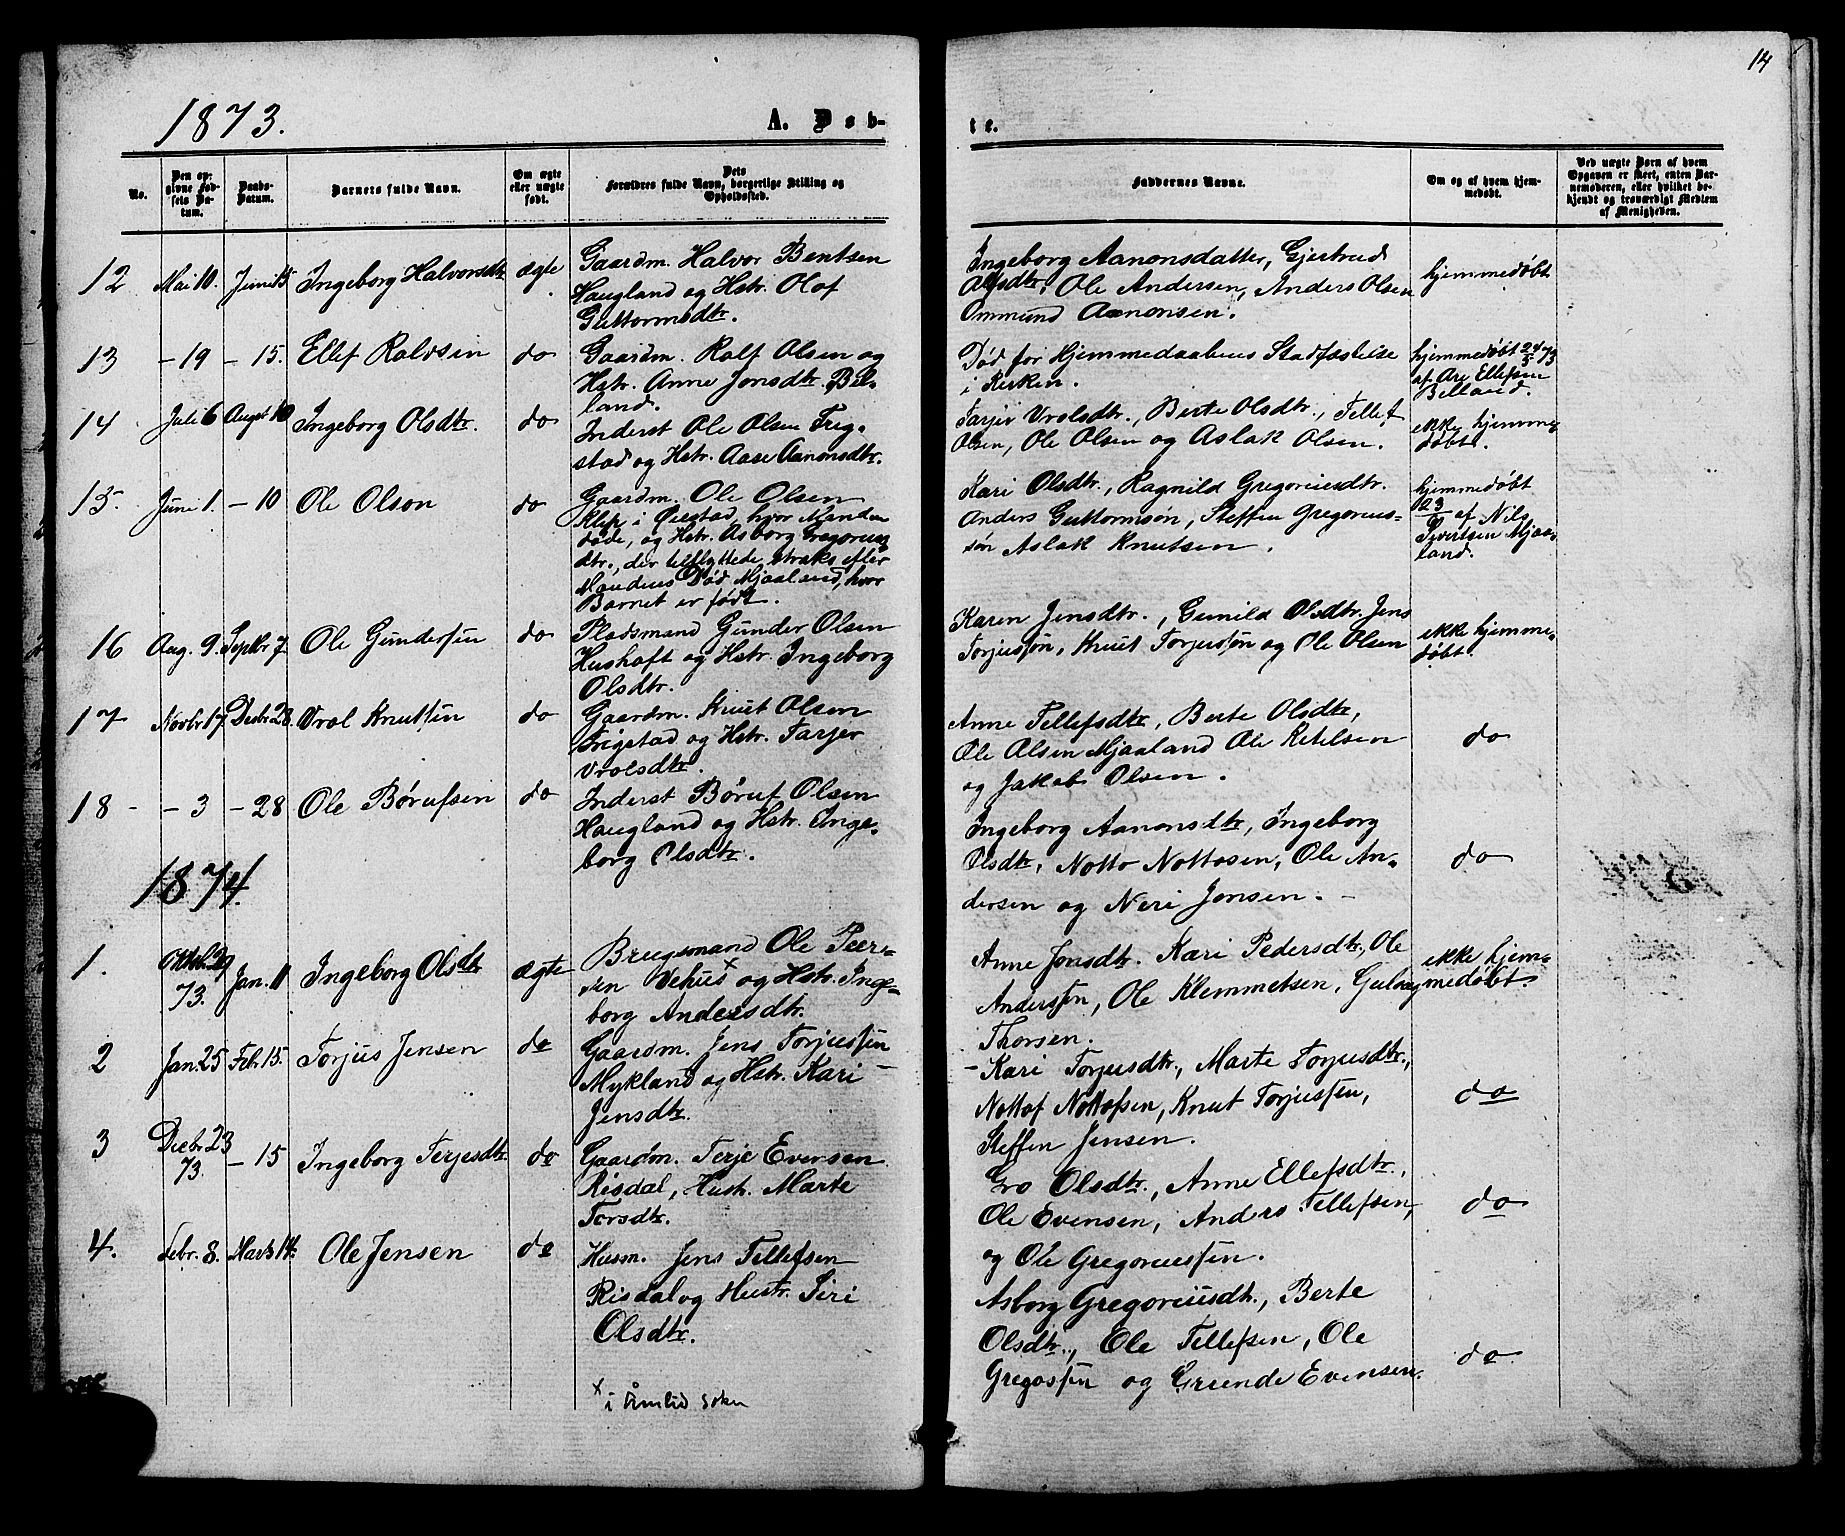 14
1873.
A. Døb-
te.
No.
Den op-
givne Fød-
sels Da-
tum.
Daabs-
Datum.
Barnets fulde Navn.
Om ægte
eller uægte
født.
Dets
Forældres fulde Navn, borgerlige Stilling og
Opholdssted.
Faddernes Navne.
Om og af hvem hjem-
medøbt.
Ved uægte Børn af hvem
Opgaven er skeet, enten Bar-
nemoderen, eller hvilket be-
kjendt og troværdigt Medlem
af Menigheden.
12 Mai 10. Juni 15 Ingeborg Halvorsdtr ægte
Gaardm. Halvor Bentsen
Haugland og Hstr. Olof
Guttormsdtr.
Ingeborg Aanonsdatter, Gjertrud
Olsdtr. Ole Andersen, Anders Olsen
Ommund Aanonsen.
hjemmedøbt
13 - 19 - 15. Ellef Rolvsen do
Gaardm. Rolf Olsen og
Hstr. Anne Jonsdtr. Bel-
land.
Død før Hjemmedaabens Stadfæstelse
i Kirken.
hjemmedøbt 24/5 73
af Are Ellefsen
Belland.
14 Juli 6 August 10 Ingeborg Olsdtr. do
Inderst Ole Olsen Trig-
stad og Hstr. Aase Aanonsdtr.
Tarjer Vrolsdtr., Berte Olsdtr., Tellef
Olsen, Ole Olsen og Aslak Olsen.
ikke hjemme-
døbt.
15. Juni 1. - 10 Ole Olson do
Gaardm. Ole Olsen
Klep i Øiestad, hvor Manden
døde, og Hstr. Asborg Gregorius-
dtr., der tilflyttede straks efter
Mandens Død Mjaaland, hvor
Barnet er født.
Kari Olsdtr., Ragnild Gregoriusdtr.
Anders Guttormsøn, Steffen Gregorius-
søn Aslak Knutsen.
hjemmedøbt
af Nils
Sivertsen Mjaa-
land.
16 Aug. 9. Septbr 7 Ole Gundersen do
Pladsmand Gunder Olsen
Hushoft og Hstr. Ingeborg
Olsdtr.
Karen Jensdtr., Gunild Olsdtr. Jens
Torjussøn, Knut Torjussøn og Ole Olsen
ikke hjemme-
døbt.
17 Novbr 17. Decbr 28. Vrol Knutsen do
Gaardm. Knut Olsen
Trigstad og Hstr. Tarjer
Vrolsdtr.
Anne Tellefsdtr, Berte Olsdtr,
Ole Olsen Mjaaland Ole Ketelsen
og Jakob Olsen.
do
18 - - 3 - 28 Ole Børufsen do
Inderst Børuf Olsen
Haugland og Hstr. Inge-
borg Olsdtr.
Ingeborg Aanonsdtr, Ingeborg
Olsdtr, Notto Nottosen, Ole An-
dersen og Neri Jonsen. -
do
1874.
1. Oktbr 29 73. Jan. 11 Ingeborg Olsdtr ægte
Brugsmand Ole Peer-
sen Vehus x og Hstr. Inge-
borg Andersdtr.
Anne Jonsdtr. Kari Pedersdtr, Ole
Anderssen, Ole Klemmetsen, Gulvag
Thorsen.
ikke hjem-
medøbt.
2 Jan. 25 Feb. 15. Torjus Jensen do
Gaardm. Jens Torjussen
Mykland og Hstr. Kari -
Jensdtr.
- Kari Torjusdtr., Marte Torjusdtr.,
Nottof Nottofsen, Knut Torjussen,
Steffen Jensen.
do
3 Decbr 23 73. - 15 Ingeborg Terjesdtr. do
Gaardm. Terje Evensen
Risdal, Hustr. Marte
Torsdtr.
Gro Olsdtr., Anne Ellefsdtr.,
Ole Evensen, Anders Tellefsen,
og Ole Gregoriussen.
do
4. Febr. 8. Marts 14. Ole Jensen do
Husm. Jens Tellefsen
Risdal og Hustr. Siri
Olsdtr.
Asborg Gregoriusdtr., Berte
Olsdtr., Ole Tellefsen, Ole
Gregossen og Gruende Evensen.
do.
x i Åmlid sokn